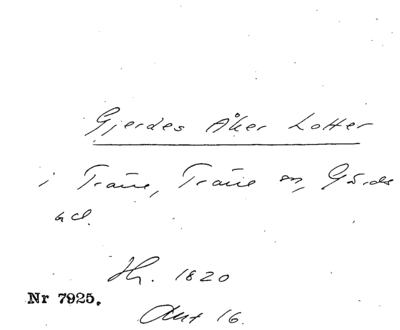 Gjerdes Åker Lotter
i Trane, Trane sn, Gärds
hd.
Hr. 1820
Nr 7925.
Akt 16.